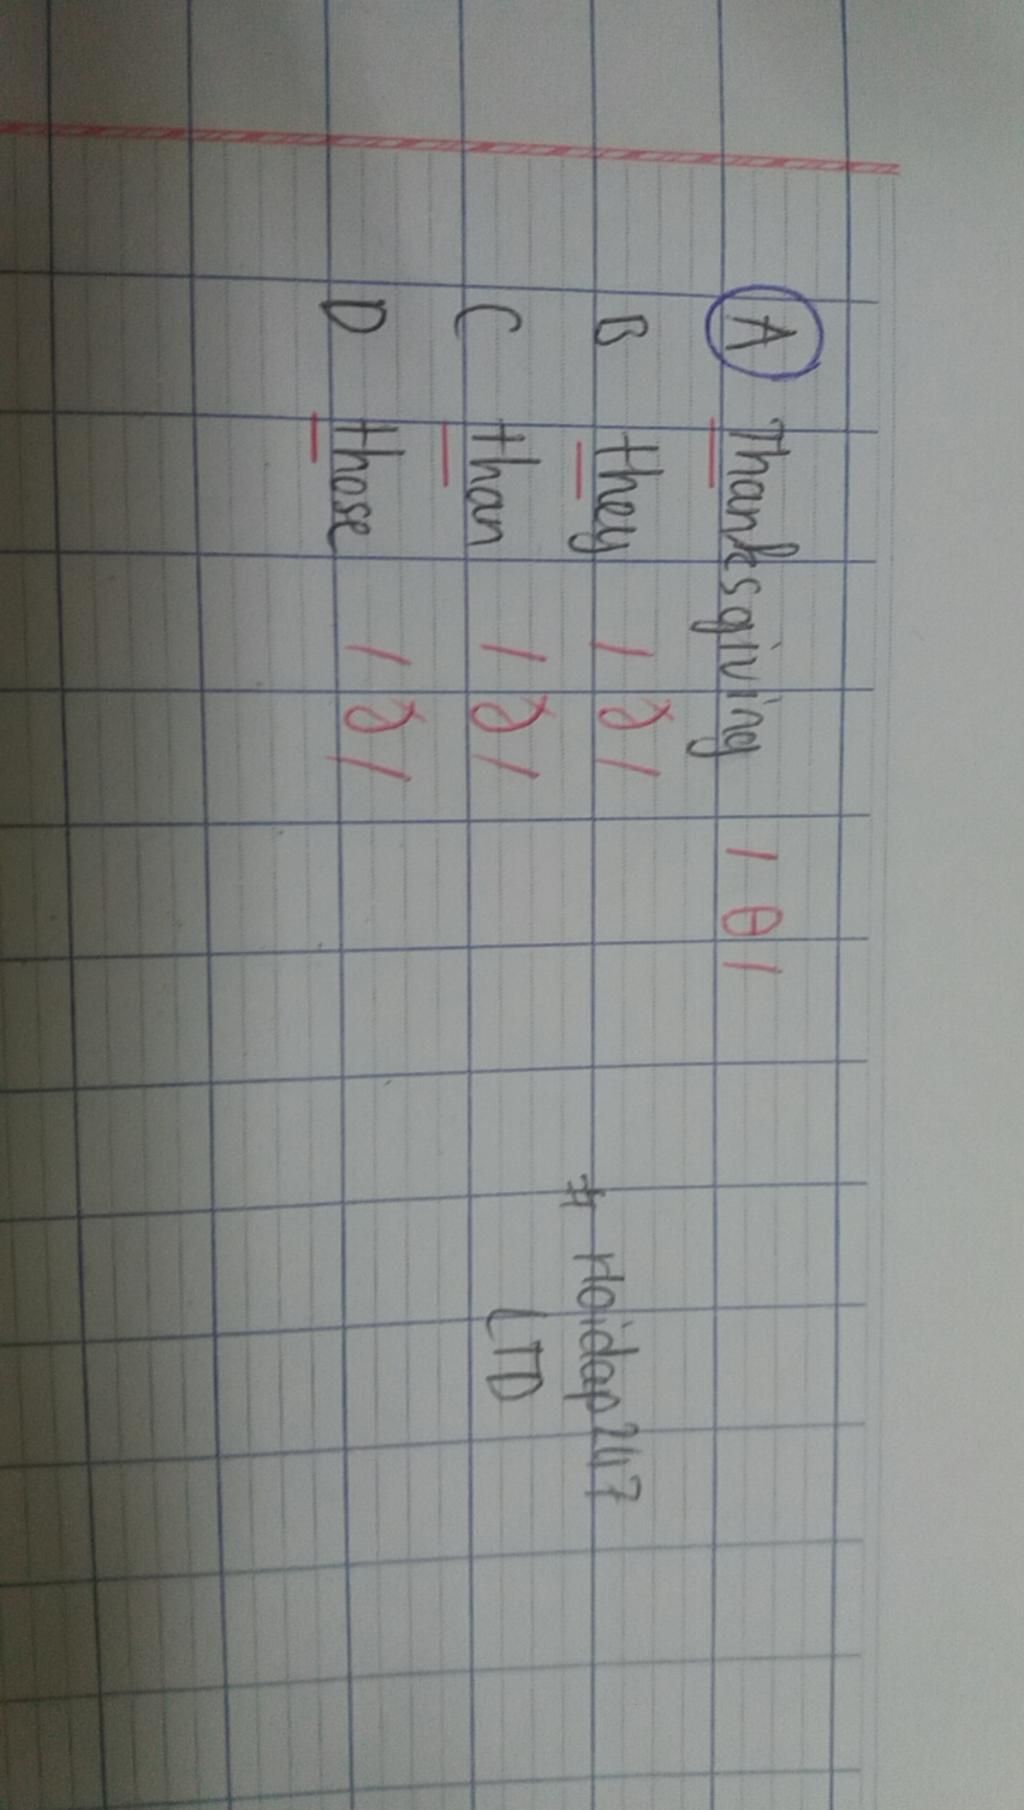 A Thanksgiving /θ/
B they /ð/
C than /ð/
D those /ð/
# Hoidap247
LTD